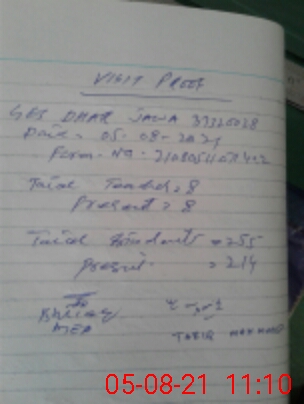 VISIT PROOF
GBS DHAR JAWA 37320028
Date. 05-08-2021
Form. No
Total Teacher = 8
Present = 8
Total Students = 255
Present = 214
TAHIR MEHMOOD
05-08-21 11:10